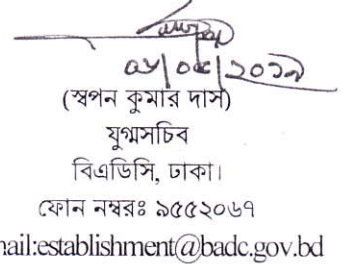 (স্বপন কুমার দাস)
যুগ্মসচিব
বিএডিসি, ঢাকা।
ফোন নম্বরঃ ৯৫৫২০৬৭
nail:establishment@badc.gov.bd